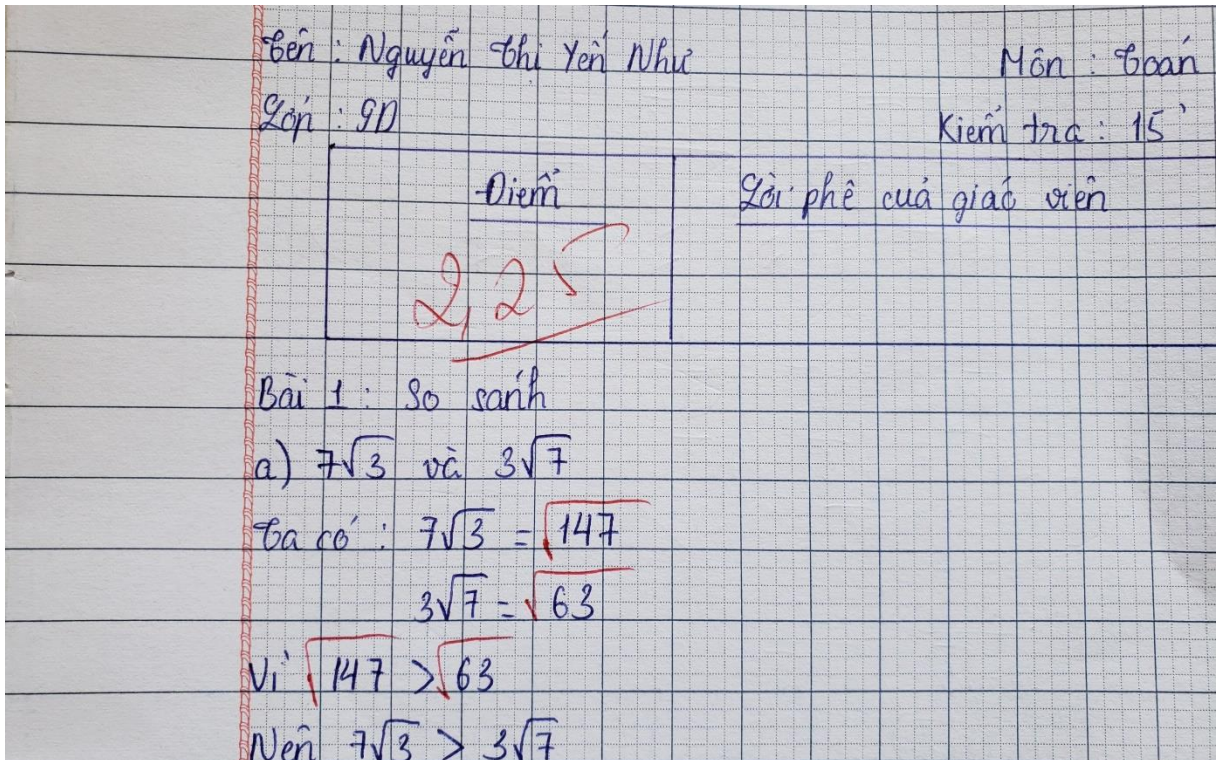 Tên : Nguyễn Thị Yến Như Môn : Toán
Lớp : 9D Kiểm tra : 15'
Điểm Lời phê của giáo viên
2,25
Bài 1 : So sánh
a) 7√3 và 3√7
Ta có : 7√3 = √147
3√7 = √63
Vì √147 > √63
Nên 7√3 > 3√7